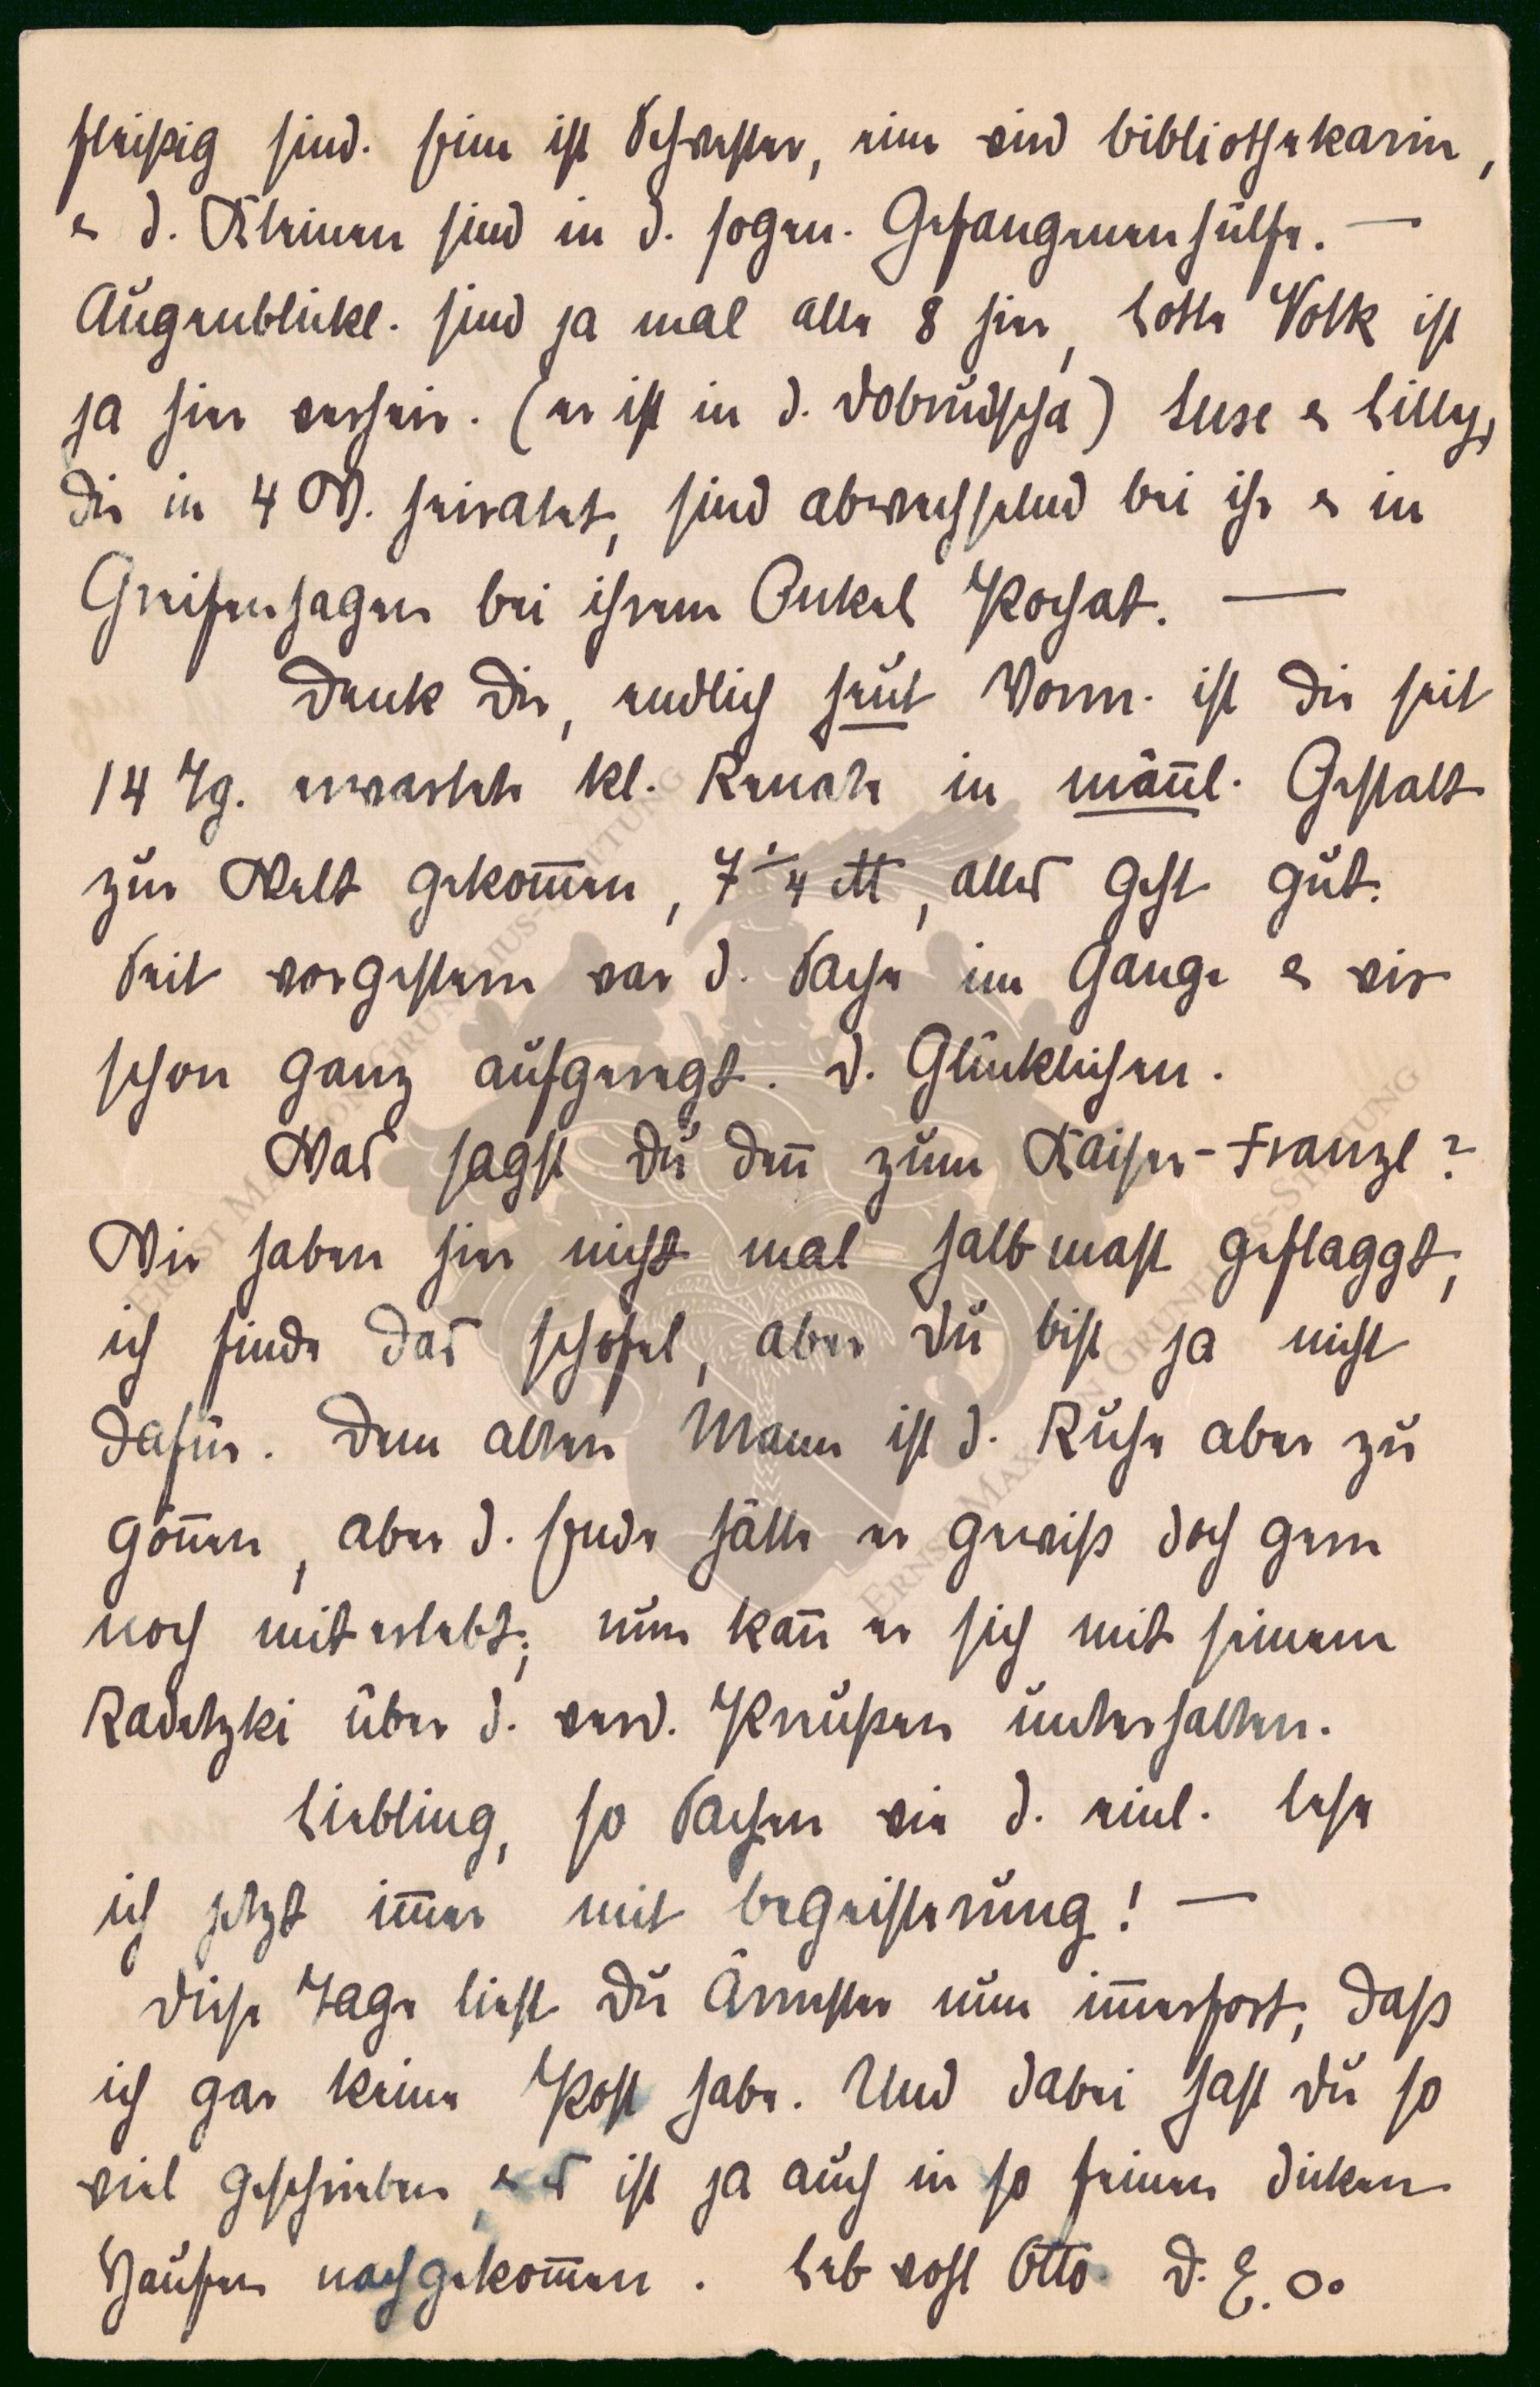 fleißig sind. Eine ist Schwester, eine wird Bibliothekarin,
u d. Kleinen sind in d. sogen. Gefangenenhülfe. —
Augenblickl. sind ja mal alle 8 hier, Lotte Volk ist
ja hier verheir. (er ist in d. Dobrudscha) Luse u Lilly,
die in 4 W. heiratet, sind abwechselnd bei ihr u in
Greifenhagen bei ihrem Onkel Kochat. —
Denk Dir, endlich heut Vorm. ist die seit
14 Tg. erwartete kl. Renate in män̄l. Gestalt
zur Welt gekom̄en, 7 1/4 ℔, alles geht gut.
Seit vorgestern war d. Sache im Gange u wir
schon ganz aufgeregt. D. Glücklichen.
Was sagst Du den̄ zum Kaiser-Franzl?
Wir haben hier nicht mal halbmast geflaggt,
ich finde das schofel, aber Du bist ja nicht
dafür. Dem alten Mann ist d. Ruhe aber zu
gön̄en, aber d. Ende hätte er gewiß doch gern
noch miterlebt; nun kan̄ er sich mit seinem
Radetzki über d. verd. Preußen unterhalten.
Liebling, so Sachen wie d. einl. lese
ich jetzt im̄er mit Begeisterung! —
Diese Tage liest Du Ärmster nun im̄erfort, daß
ich gar keine Post habe. Und dabei hast Du so
viel geschrieben, u es ist ja auch in so feinen dicken
Haufen nachgekom̄en. Leb wohl Otto. D. E. Oo
ERNST MAX VON GRUNELIUS-STIFTUNG
ERNST MAX VON GRUNELIUS-STIFTUNG